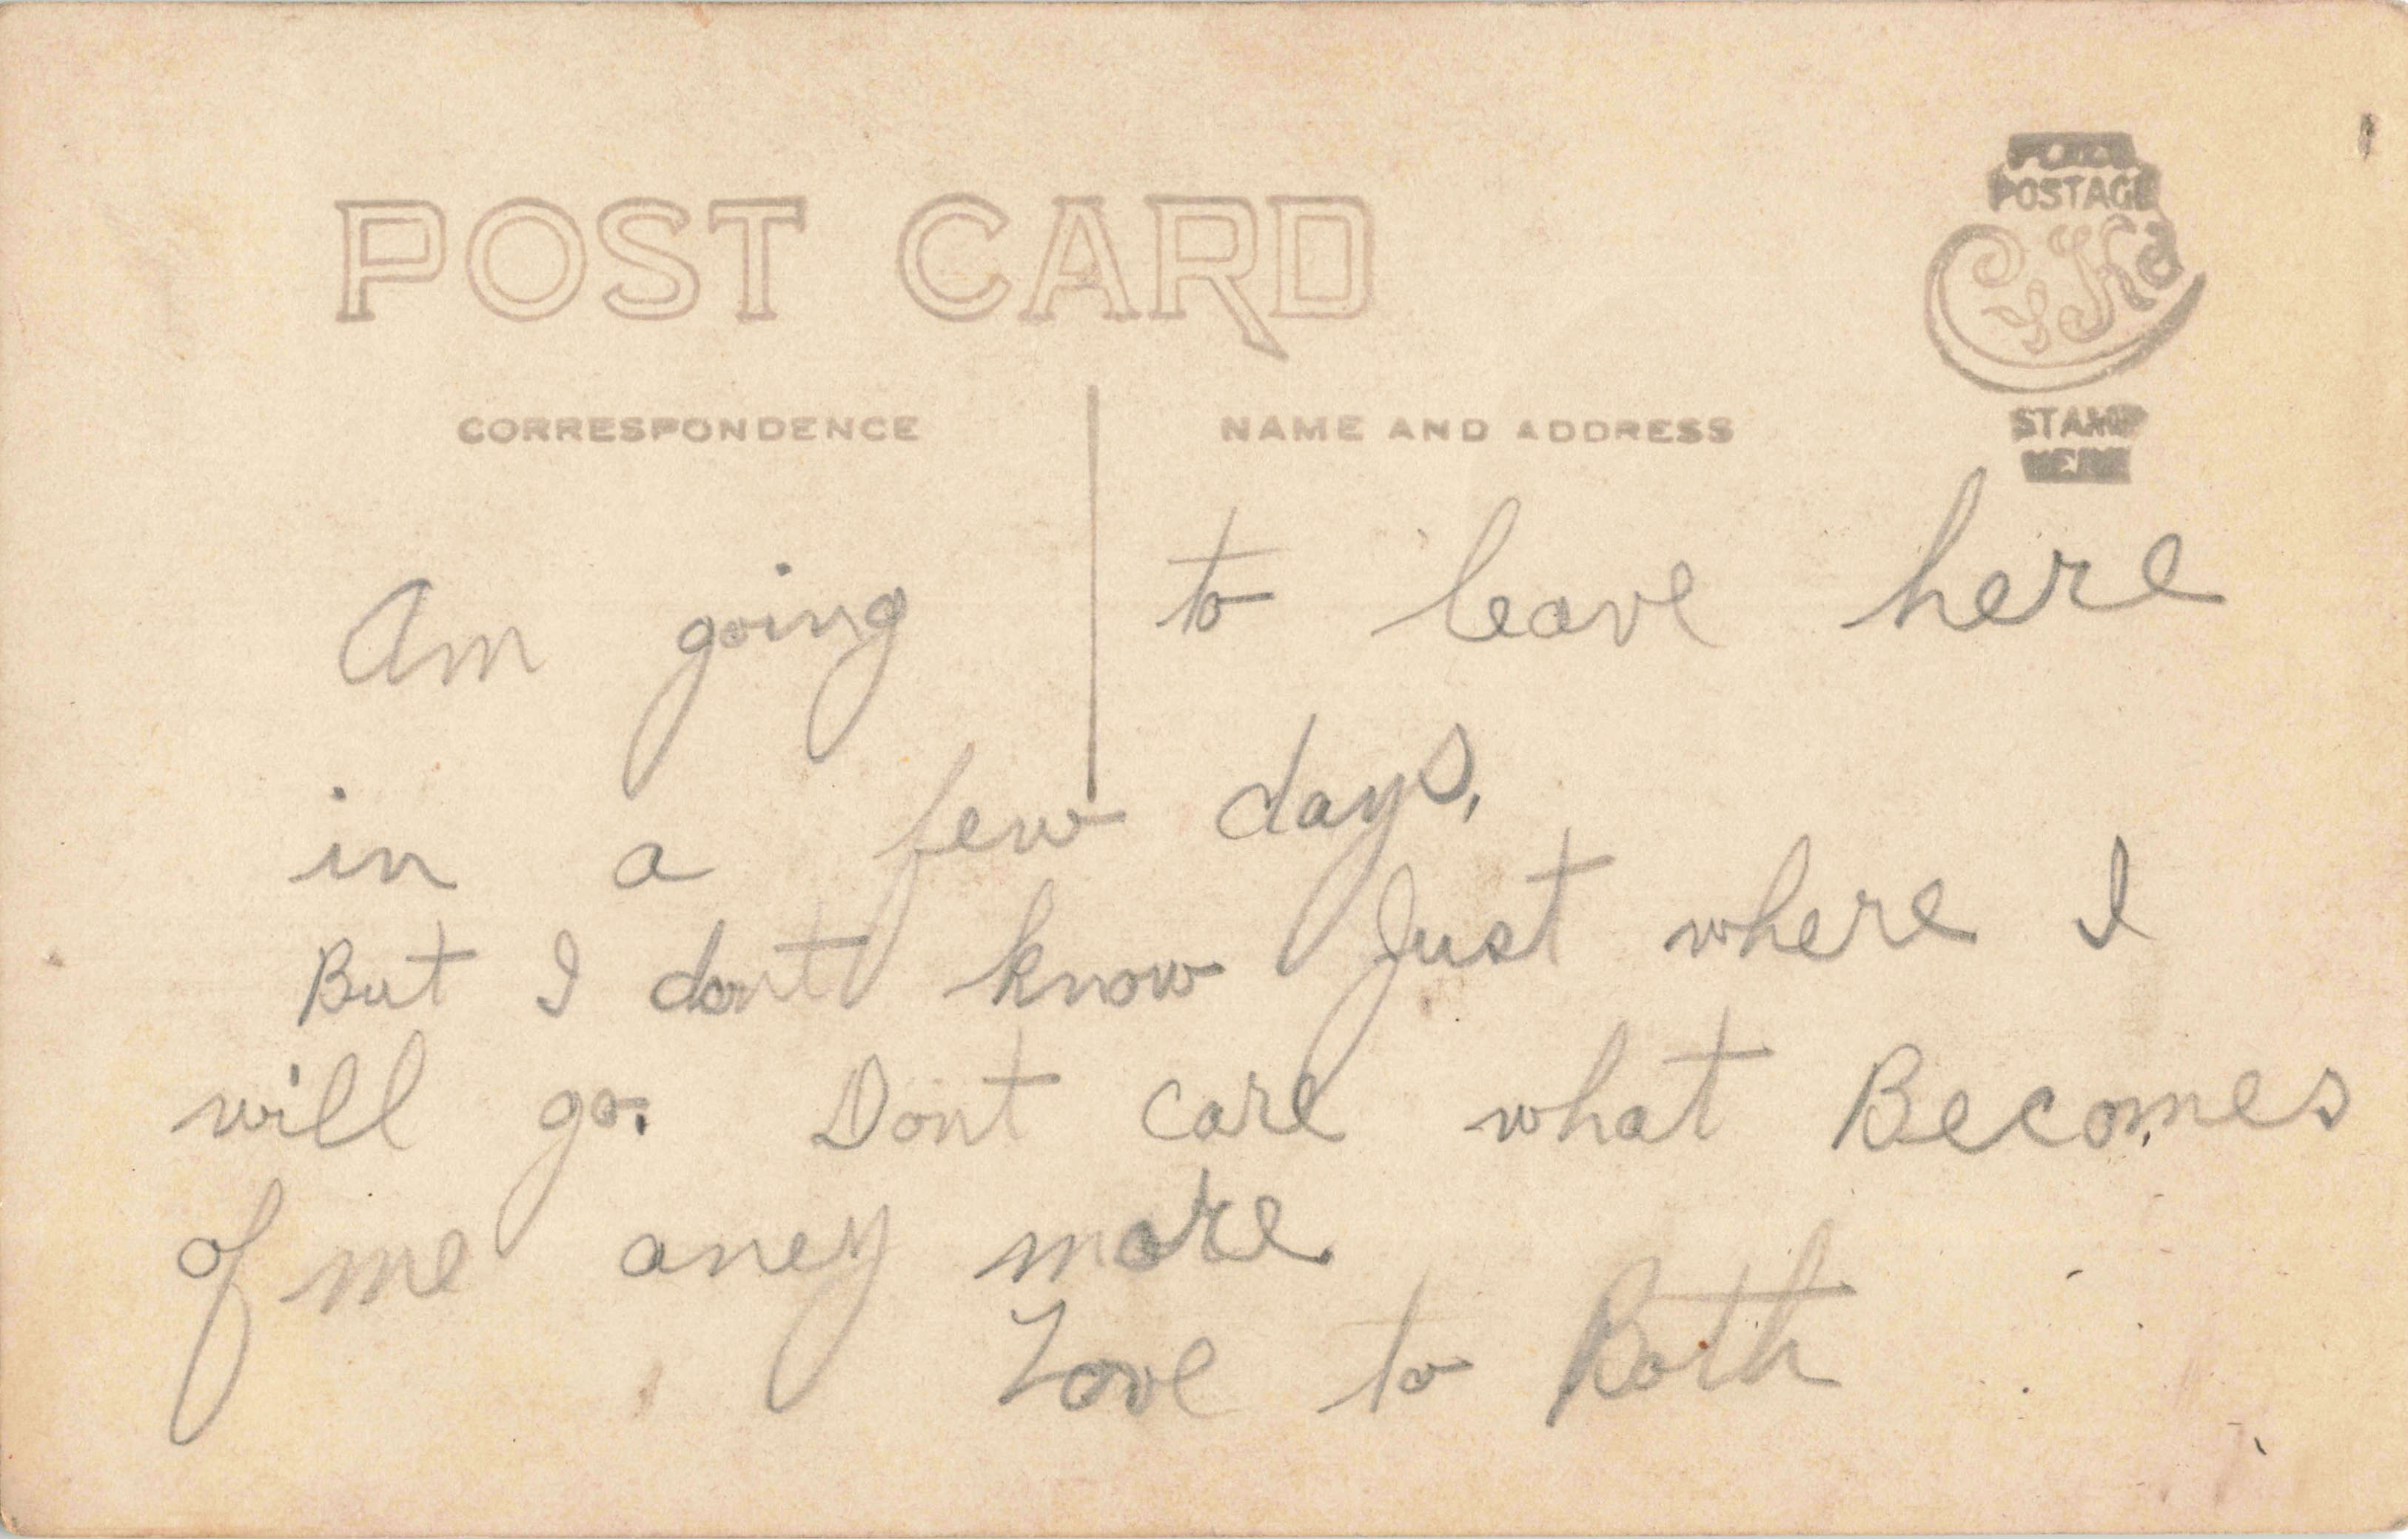 POST CARD
PLACE
POSTAGE
CORRESPONDENCE
NAME AND ADDRESS
STAMP
HERE
Am going to leave here
in a few days,
But I dont know Just where I
will go. Dont care what Becomes
of me aney more
Love to Both